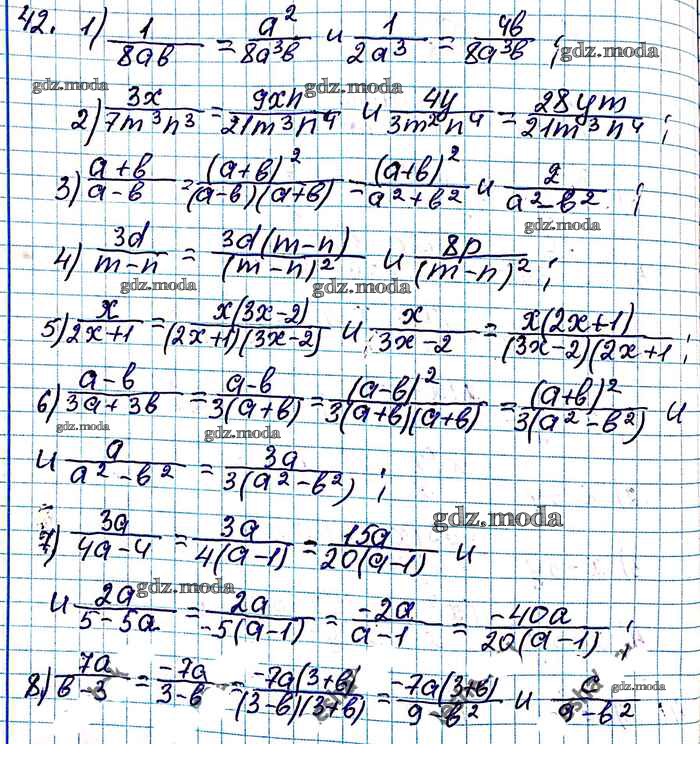 42. 1) 1/(8ab) = a²/(8a³b) и 1/(2a³) = 4b/(8a³b) ; gdz.moda
gdz.moda gdz.moda
2) 3x/(7m³n³) = 9xn/(21m³n⁴) и 4y/(3m²n⁴) = 28ym/(21m³n⁴) ;
3) (a+b)/(a-b) = (a+b)²/((a-b)(a+b)) = (a+b)²/(a²+b²) и 2/(a²-b²) ;
gdz.moda
4) 3d/(m-n) = 3d(m-n)/(m-n)² и 8p/(m-n)² ;
gdz.moda gdz.moda
5) x/(2x+1) = x(3x-2)/((2x+1)(3x-2)) и x/(3x-2) = x(2x+1)/((3x-2)(2x+1 ;
6) (a-b)/(3a+3b) = (a-b)/(3(a+b)) = (a-b)²/(3(a+b)(a+b)) = (a+b)²/(3(a²-b²)) и
gdz.moda gdz.moda
и a/(a²-b²) = 3a/(3(a²-b²)) ;
gdz.moda
7) 3a/(4a-4) = 3a/(4(a-1)) = 15a/(20(a-1)) и
gdz.moda
и 2a/(5-5a) = 2a/(-5(a-1)) = -2a/(a-1) = -40a/(20(a-1)) ;
8) 7a/(b-3) = -7a/(3-b) = -7a(3+b)/((3-b)(3+b)) = -7a(3+b)/(9-b²) и c/(9-b²) .
gdz.moda